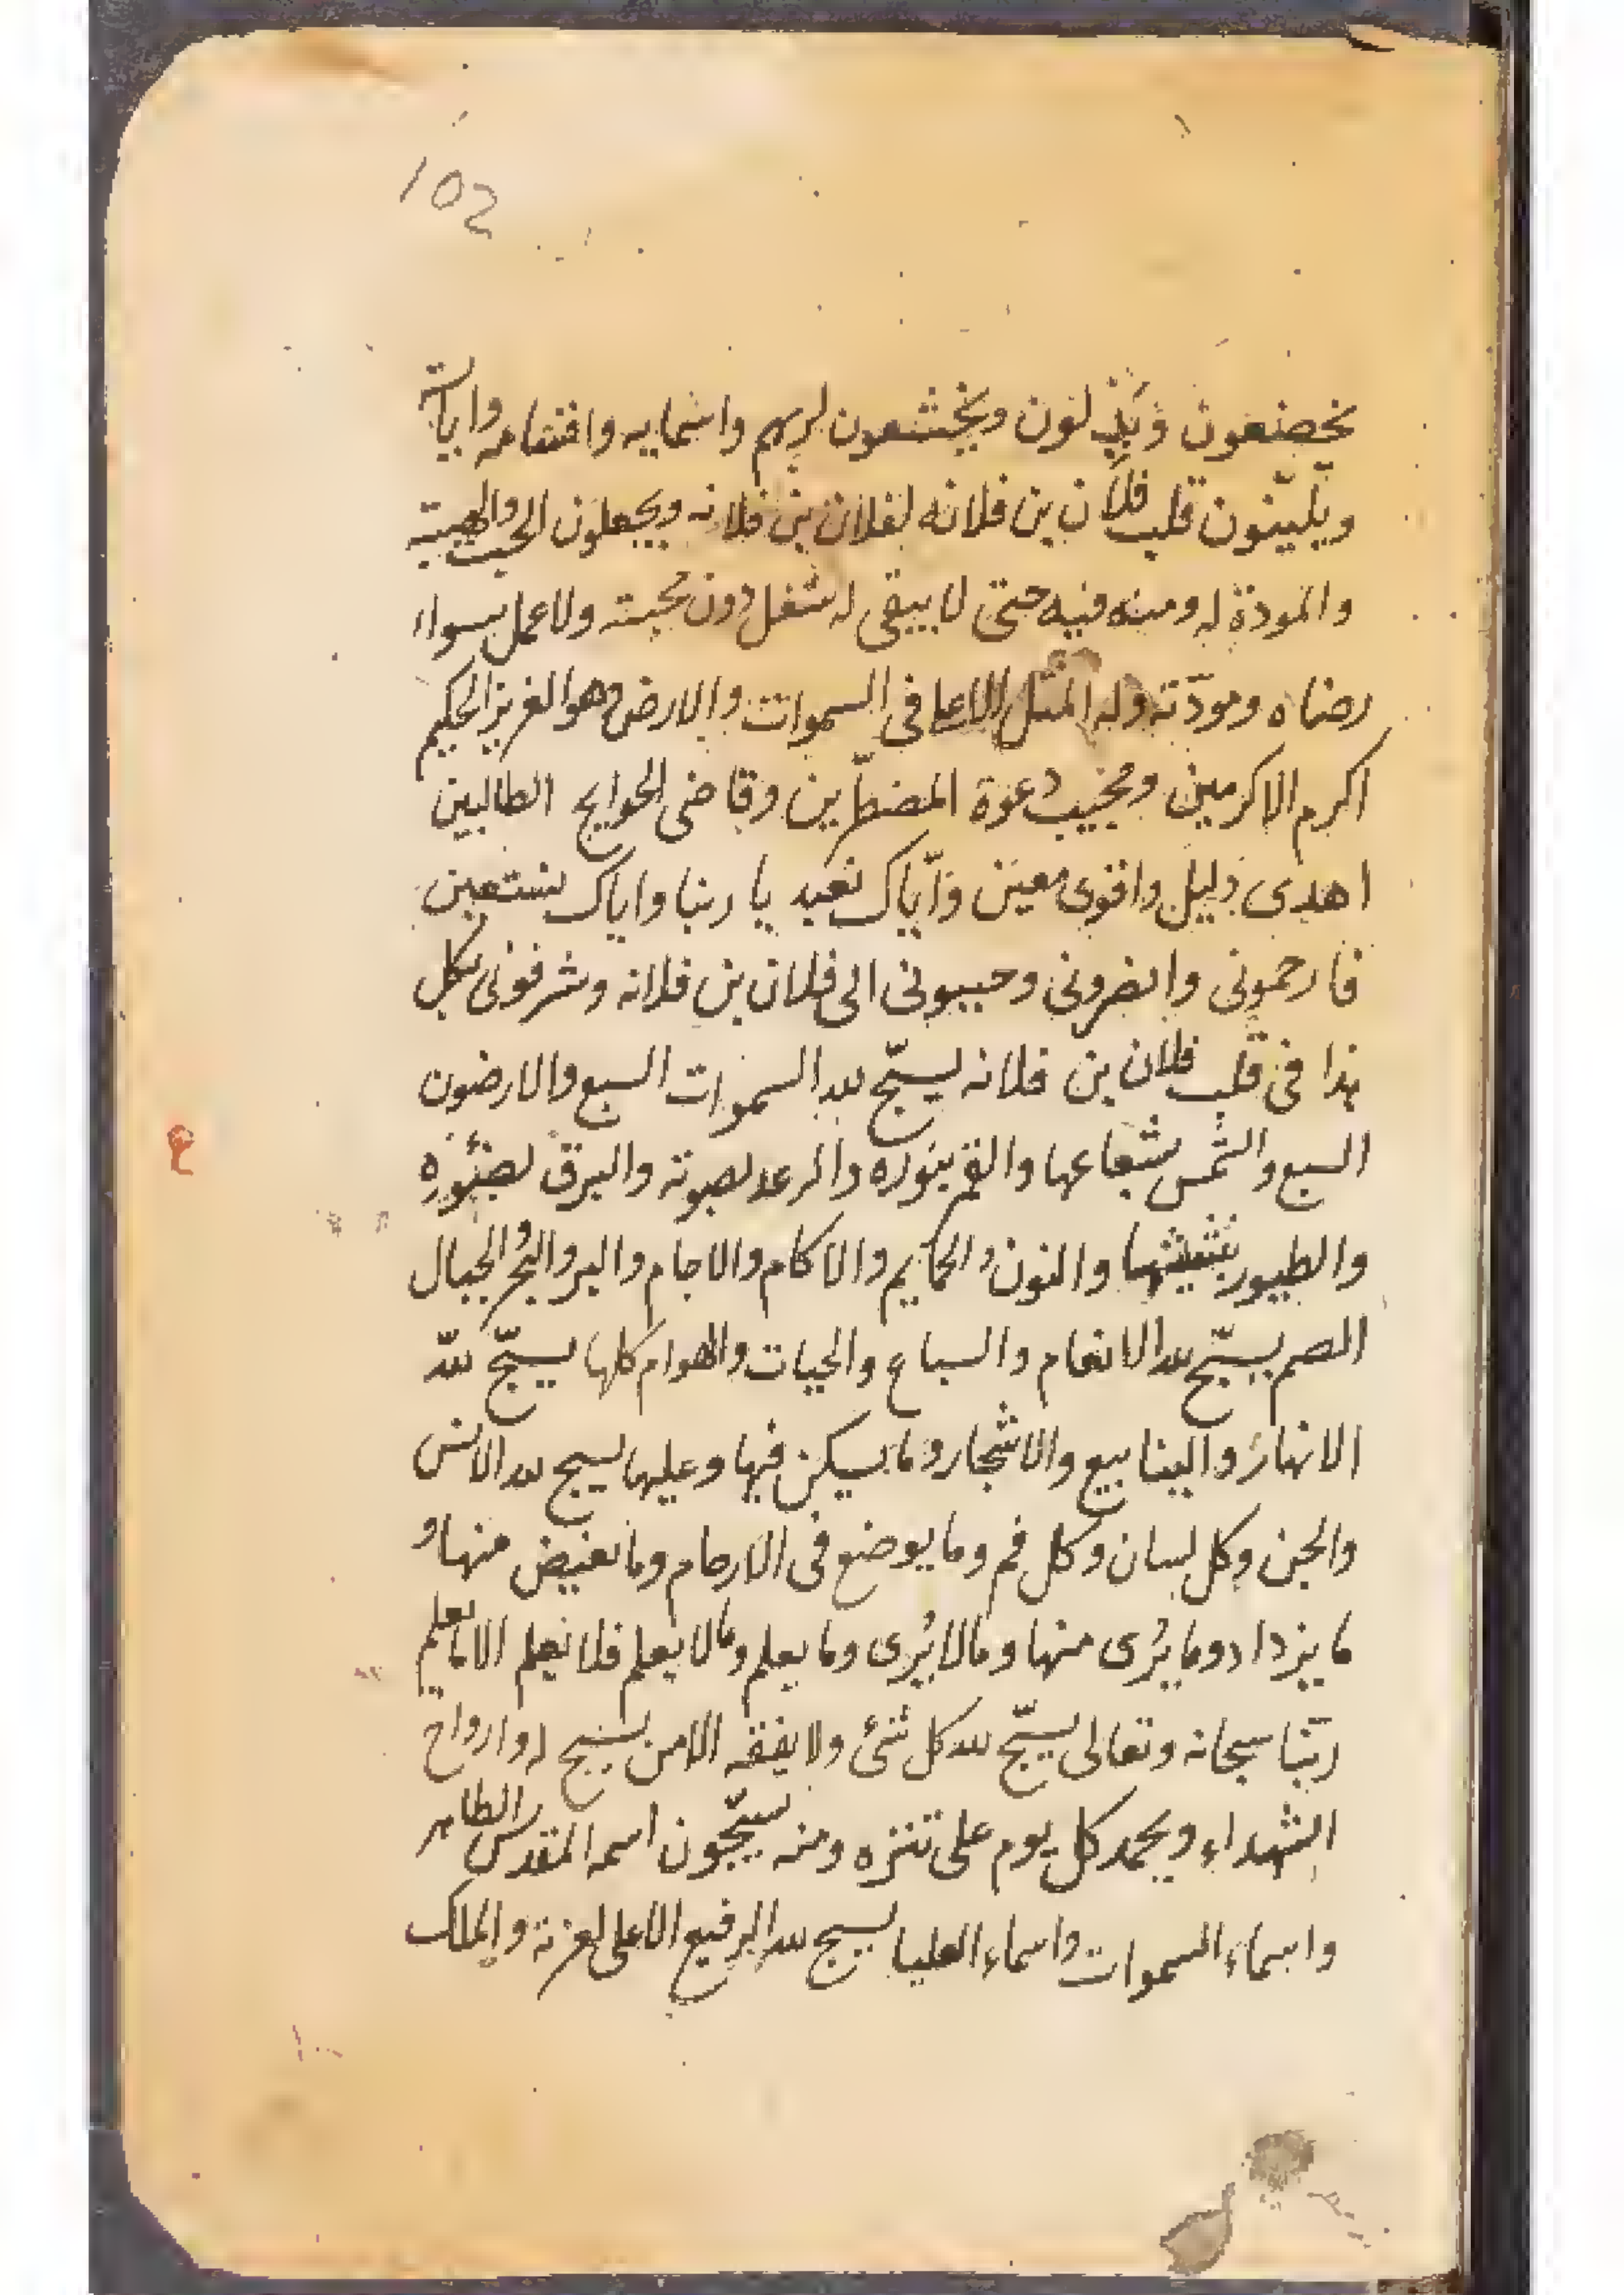 102
يخضعون ويذلون ويخشعون لربهم واسمايه واقسامه واياته
ويلينون قلب فلان بن فلانه لفلان بن فلانه ويجعلون الحب والهيبة
والمودة له ومنه فيه حتى لا يبقى له شغل دون محبته ولا عمل سواء
رضاه ومودّته وله المثل الاعلا فى السموات والارض وهو العزيز الحكيم
اكرم الاكرمين ومجيب دعوة المضطرّين وقاضى الحوايج الطالبين
اهدى دليل واقوى معين وايّاك نعبد يا ربنا واياك نستعين
فارحمونى وانصرونى وحببونى الى فلان بن فلانه وشرفونى بكل
هذا فى قلب فلان بن فلانه يسبّح لله السموات السبع والارضون
السبع والشمس بشعاعها والقمر بنوره والرعد بصوته والبرق بضوءه
والطيور والنون والحمايم والاكام والاجام والبر والبحر والجبال
الصم يسبّح لله الانعام والسباع والحيات والهوام كلها يسبّح لله
الانهار والينابيع والاشجار وما يسكن فيها وعليها يسبح لله الانس
والجن وكل لسان وكل فم وما يوضع فى الارحام وما تغيض منها و
ما يزداد وما يُرى منها وما لا يُرى وما يعلم وما لا يعلم فلا نعلم الا ما يعلم
ربّنا سبحانه وتعالى يسبّح لله كل شئ ولا يفقه الا من يسبح له وارواح
الشهداء ويحمد كل يوم على تنزه ومنه يسبّحون اسمه المقدس الطاهر
واسماء السموات واسماء العليا يسبح لله الرفيع الاعلى لعزته والملك
ع